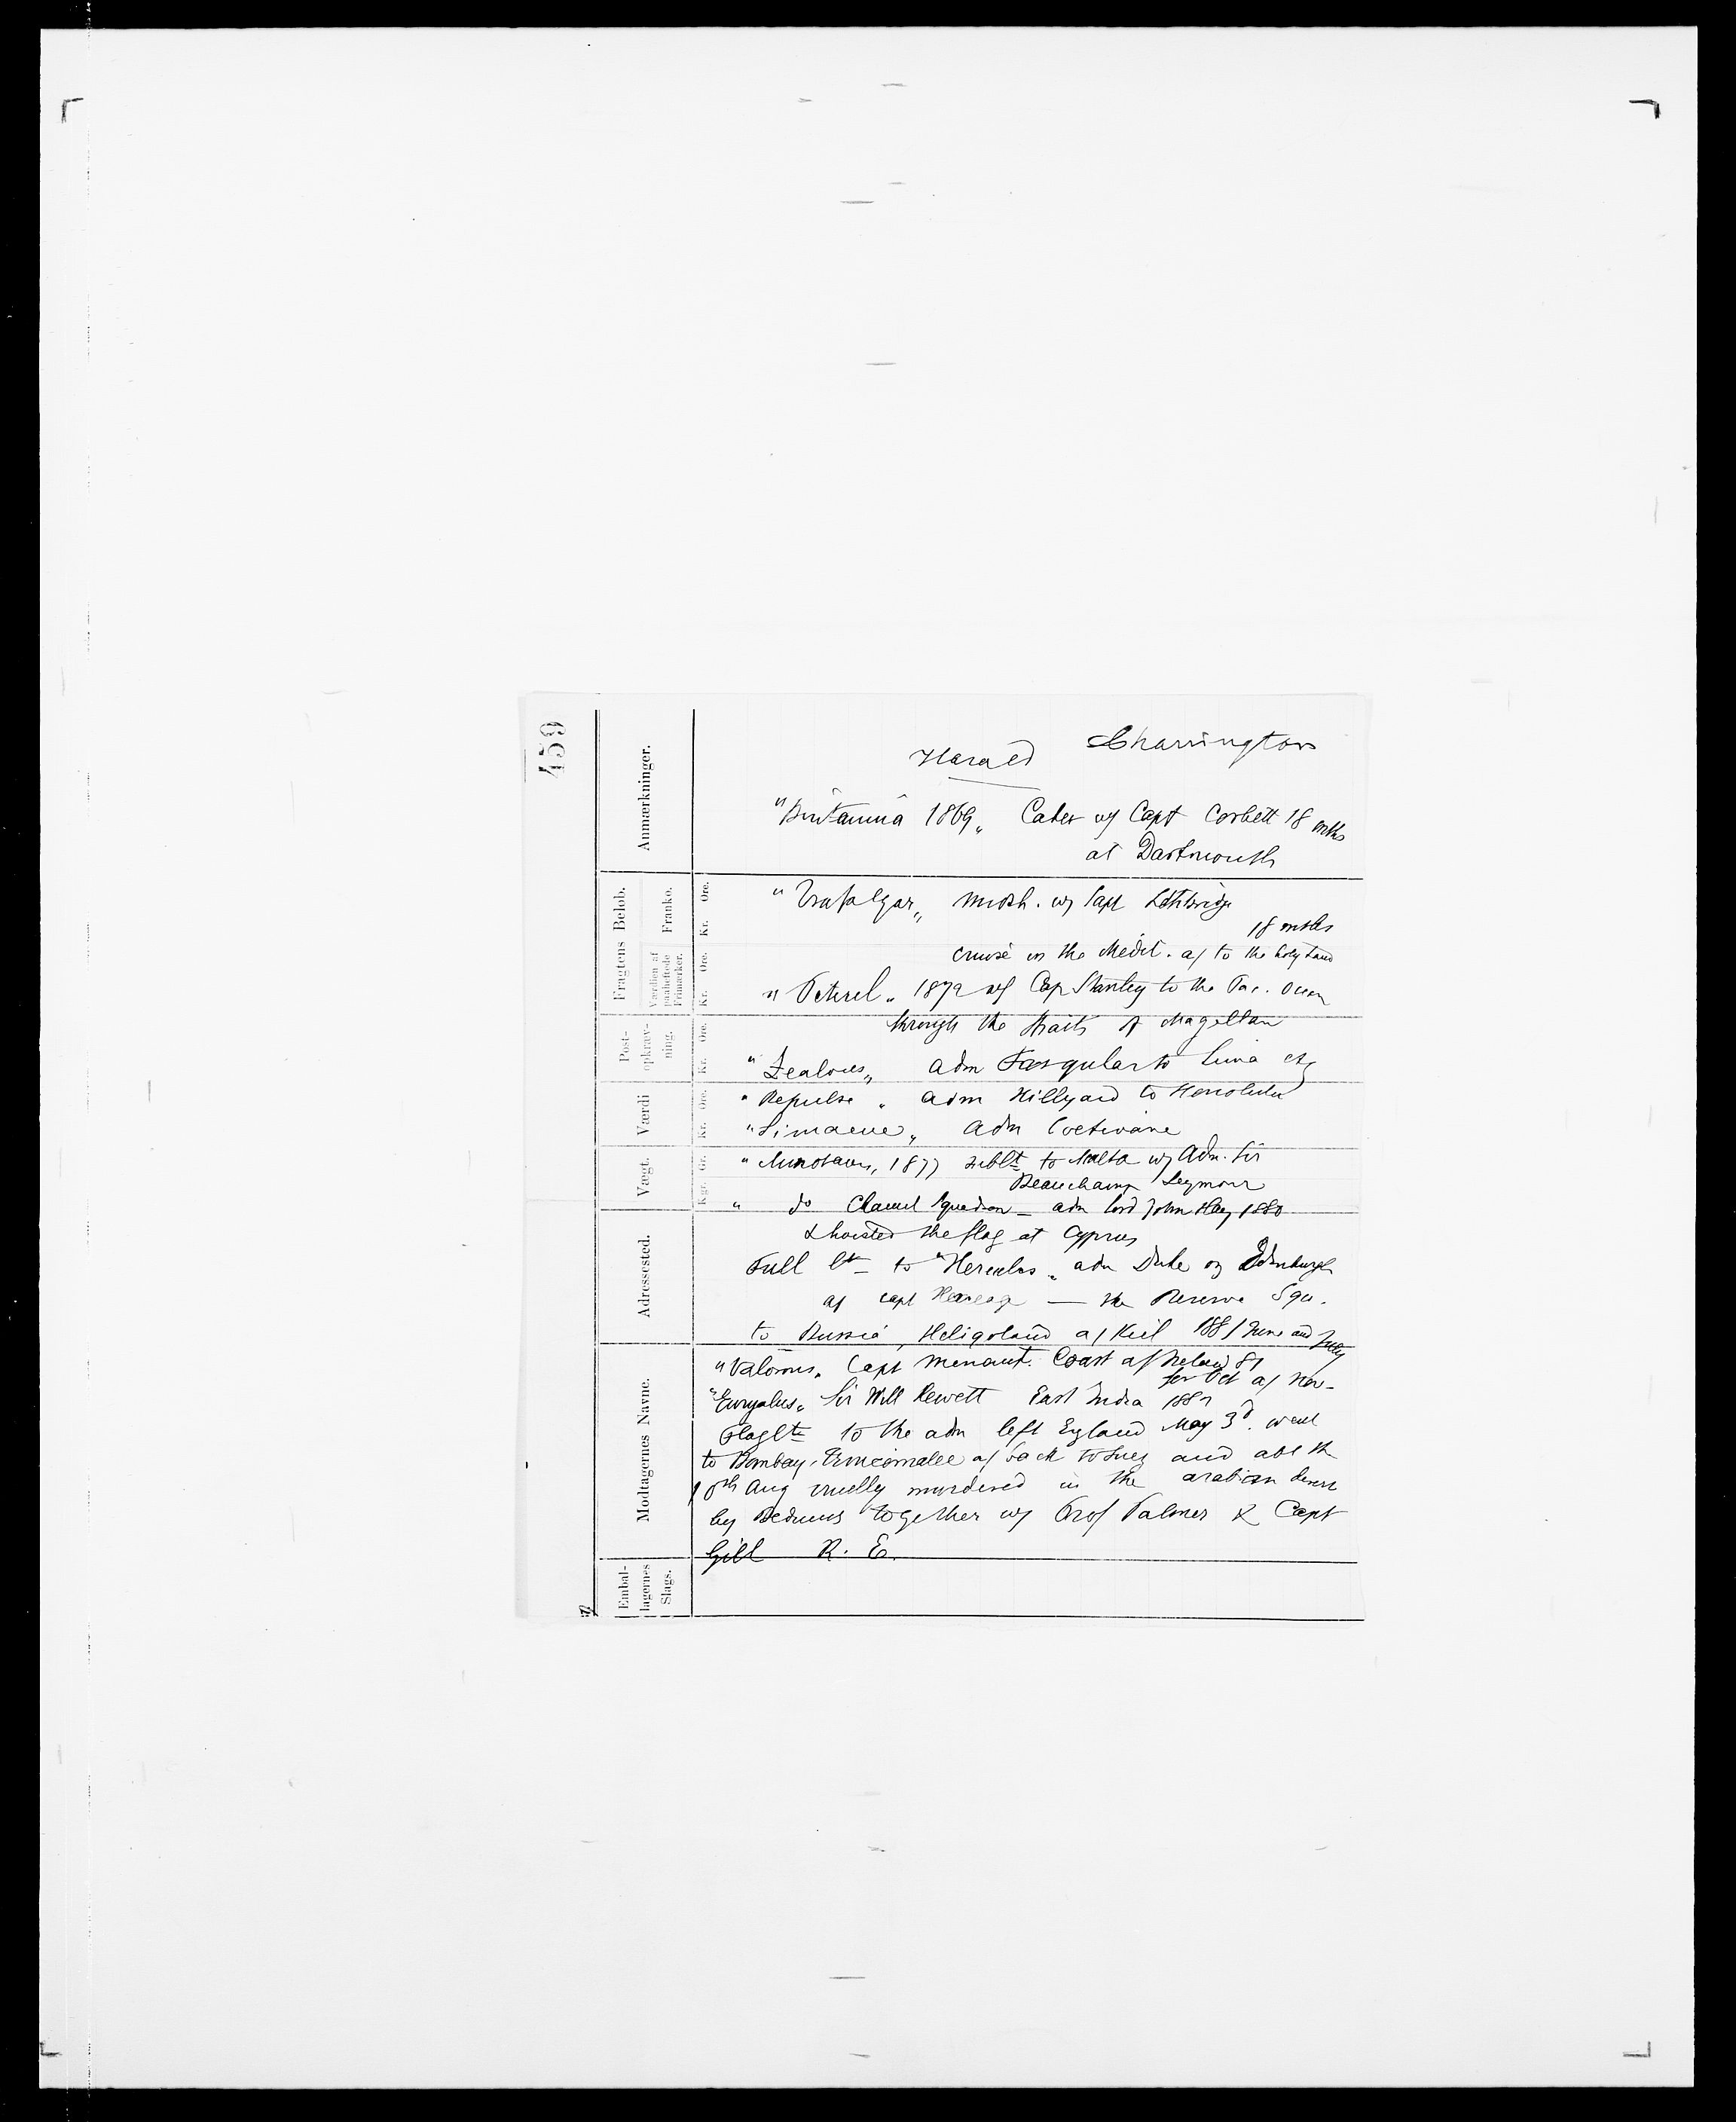 459
Anmærkninger.
Fragtens Beløb.
Franko.
Værdien af
paaheftede
Frimærker.
Post-
opkræv-
ning.
Værdi
Vægt.
Adressested.
Modtagernes Navne.
Embal-
lagernes
Slags.
Kr. Øre.
Kr. Øre.
Kr. Øre.
Kr. Øre.
Kgr. Gr.
Harald Charrington
"Britannia 1869„ Cadet w/ Capt Corbett 18 mths
at Dartmouth
"Trafalgar„ midsh. w/ Capt Lethbridge
18 mths
cruise in the Medit. a/ to the holy Land
"Peterel„ 1872 w/ Cap Stanley to the Pac. Ocean
through the Straits of Magellan
"Zealous„ adm Farquhar to Lima
"Repulse„ adm Hillyard to Honolulu
adm
"Minotaur, 1877 subltⁿ to Malta w/ Adm. Sir
Beauchamp Seymour
" do Channel Squadron – adm lord John Hay 1880
& hoisted the flag at Cyprus
Full lt – to "Hercules„ adm Duke of Edinburgh
a/ capt — the Reserve Squ.
to Russia, Heligoland a/ Kiel 1881 June and July
"Valorous„ Capt Coast of 81
Oct a/ Nov –
"Euryalus„ Sir Will Hewett East India 1882
Flaglt to the adm left England May 3d. went
to Bombay, Trincomalee a/ back to Suez and abt the
10th Aug cruelly murdered in the arabian desert
by Beduins together w/ Prof Palmer & Capt
Gill R. E.